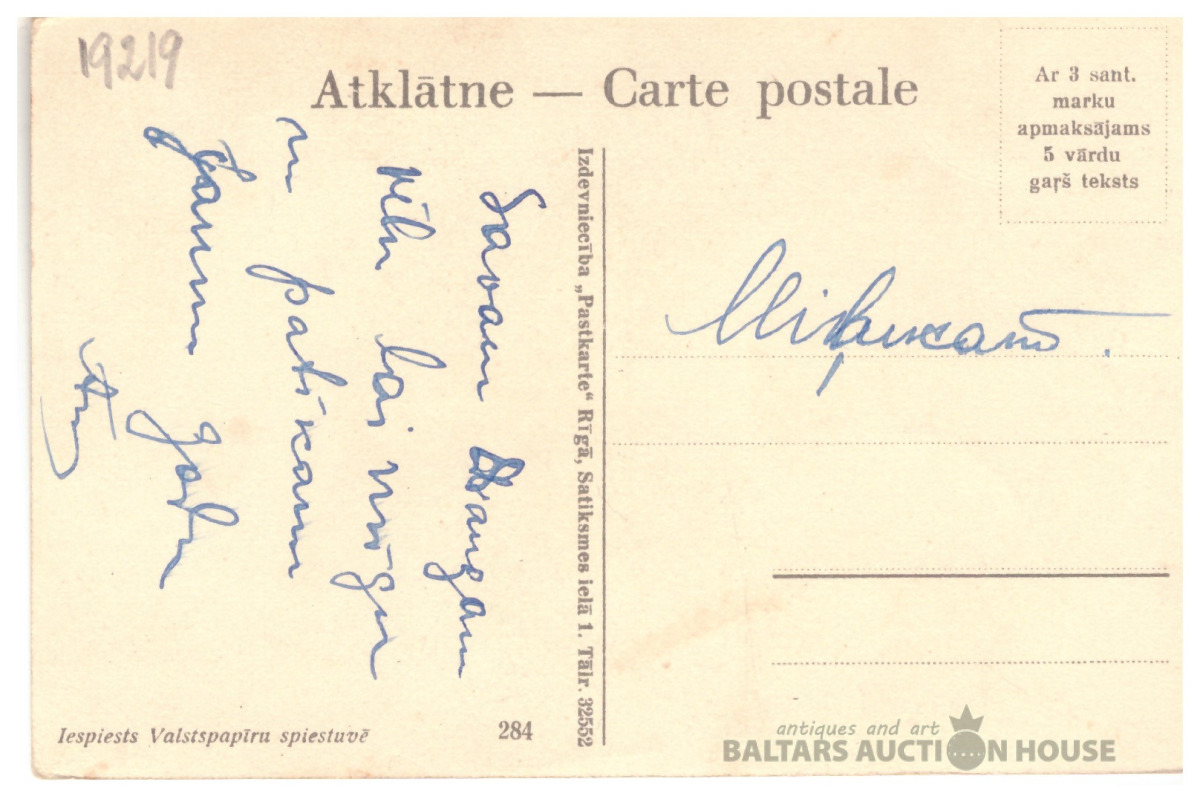 19219
Atklātne — Carte postale
Ar 3 sant.
marku
apmaksājams
5 vārdu
gaŗš teksts
Savam draugam
vēlu lai
patīkami
Jaunu gadu
Izdevniecība „Pastkarte“ Rīgā, Satiksmes ielā 1. Tālr. 32552
Iespiests Valstspapīru spiestuvē
284
antiques and art
BALTARS AUCTION HOUSE